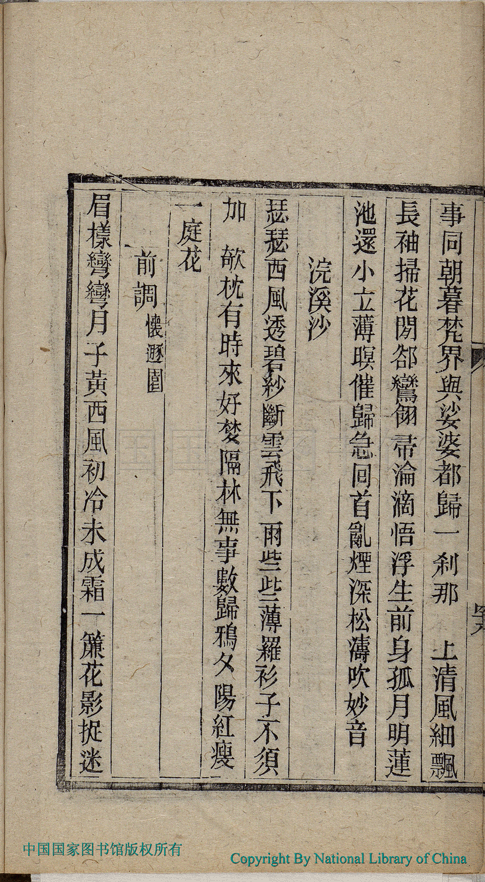 事同朝暮梵界與娑婆都歸一刹那　上清風細飄
長袖掃花閑郤鸞翎帚淪漪悟浮生前身孤月明蓮
池還小立薄暝催歸急囘首亂煙深松濤吹妙音
浣溪沙
瑟瑟西風透碧紗斷雲飛下雨些些薄羅衫子不須
加　欹枕有時來好夢隔林無事數歸鴉夕陽紅瘦
一庭花
前調 懷遯園
眉樣彎彎月子黃西風初冷未成霜一簾花影捉迷
中国国家图书馆版权所有
Copyright By National Library of China